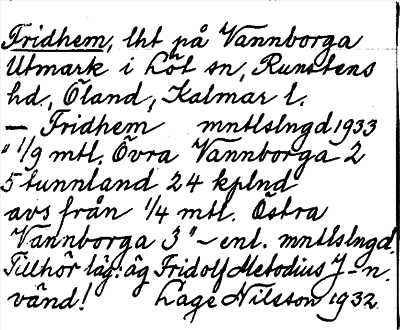 Fridhem, lht på Vannborga
Utmark i Löt sn, Runstens
hd., Öland, Kalmar l.
— Fridhem mntlslngd 1933
" 1/9 mtl. Övra Vannborga 2
5 tunnland 24 kplnd
avs från 1/4 mtl. Östra
Vannborga 3" – enl. mntlslngd.
Tillhör läg: äg Fridolf Metodius J–n.
vänd! Lage Nilsson 1932.